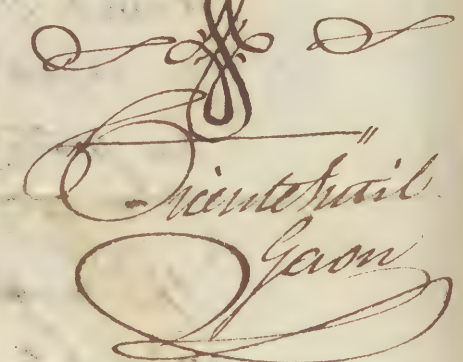 Vicente Amil
Gaon